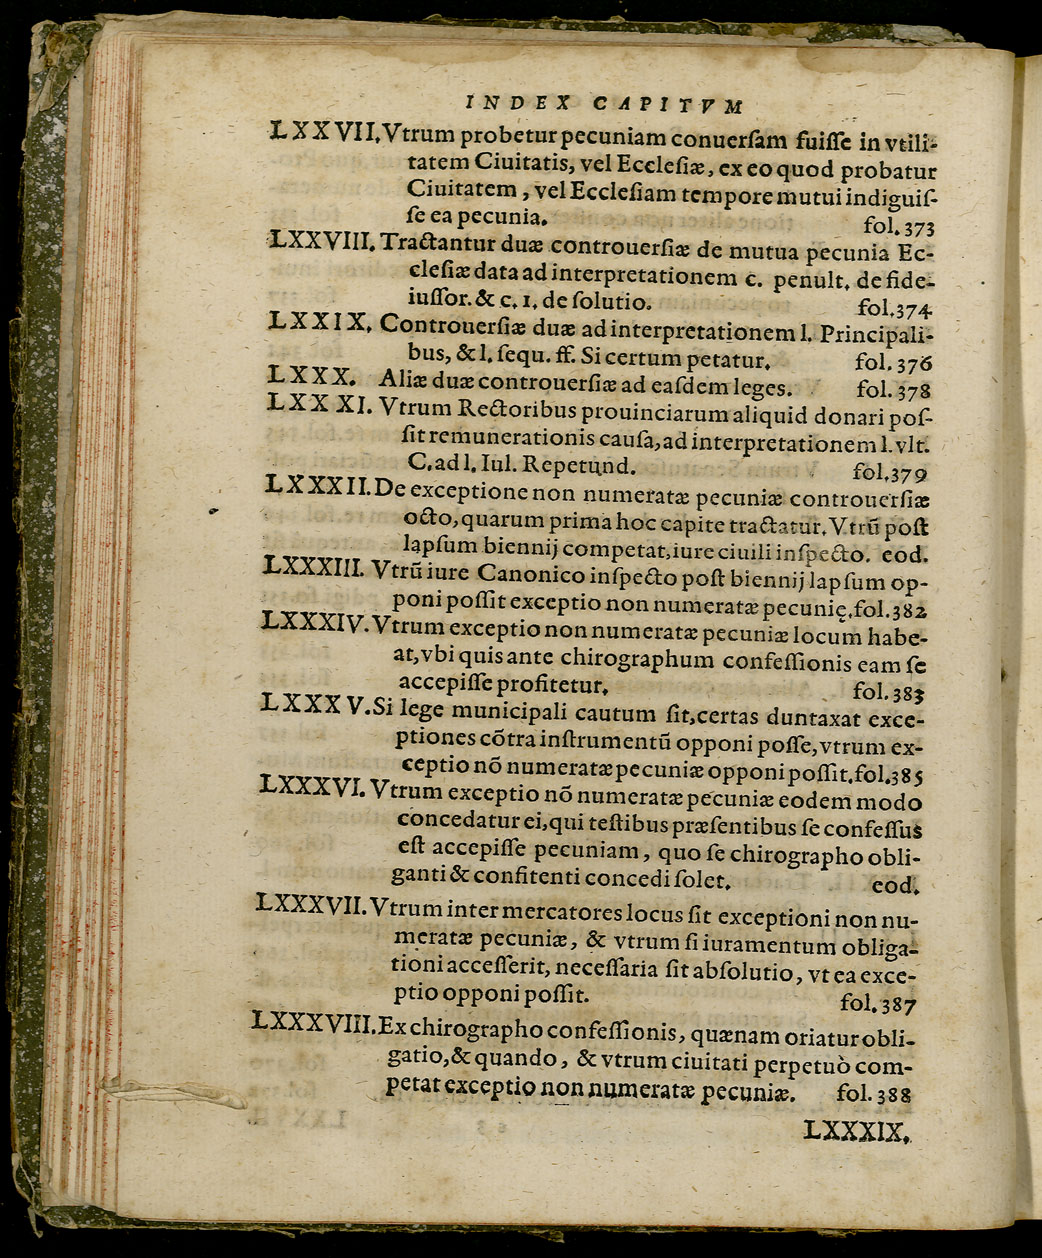 INDEX CAPITVM
LXXVII. Vtrum probetur pecuniam conuerſam fuiſſe in vtili-
tatem Ciuitatis, vel Eccleſiæ, ex eo quod probatur
Ciuitatem, vel Eccleſiam tempore mutui indiguiſ-
ſe ea pecunia. fol. 373
LXXVIII. Tractantur duæ controuerſiæ de mutua pecunia Ec-
cleſiæ data ad interpretationem c. penult. de fide-
iuſſor. & c. 1. de ſolutio. fol. 374
LXXIX. Controuerſiæ duæ ad interpretationem l. Principali-
bus, & l. ſequ. ff. Si certum petatur. fol. 376
LXXX. Aliæ duæ controuerſiæ ad eaſdem leges. fol. 378
LXXXI. Vtrum Rectoribus prouinciarum aliquid donari poſ-
ſit remunerationis cauſa, ad interpretationem l. vlt.
C. ad l. Iul. Repetund. fol. 379
LXXXII. De exceptione non numeratæ pecuniæ controuerſiæ
octo, quarum prima hoc capite tractatur. Vtrũ poſt
lapſum biennij competat, iure ciuili inſpecto. eod.
LXXXIII. Vtrũ iure Canonico inſpecto poſt biennij lapſum op-
poni poſſit exceptio non numeratæ pecunię. fol. 382
LXXXIV. Vtrum exceptio non numeratæ pecuniæ locum habe-
at, vbi quis ante chirographum confeſſionis eam ſe
accepiſſe profitetur. fol. 383
LXXXV. Si lege municipali cautum ſit, certas duntaxat exce-
ptiones cõtra inſtrumentũ opponi poſſe, vtrum ex-
ceptio nõ numeratæ pecuniæ opponi poſſit. fol. 385
LXXXVI. Vtrum exceptio nõ numeratæ pecuniæ eodem modo
concedatur ei, qui teſtibus præſentibus ſe confeſſus
eſt accepiſſe pecuniam, quo ſe chirographo obli-
ganti & confitenti concedi ſolet. eod.
LXXXVII. Vtrum inter mercatores locus ſit exceptioni non nu-
meratæ pecuniæ, & vtrum ſi iuramentum obliga-
tioni acceſſerit, neceſſaria ſit abſolutio, vt ea exce-
ptio opponi poſſit. fol. 387
LXXXVIII. Ex chirographo confeſſionis, quænam oriatur obli-
gatio, & quando, & vtrum ciuitati perpetuò com-
petat exceptio non numeratæ pecuniæ. fol. 388
LXXXIX.